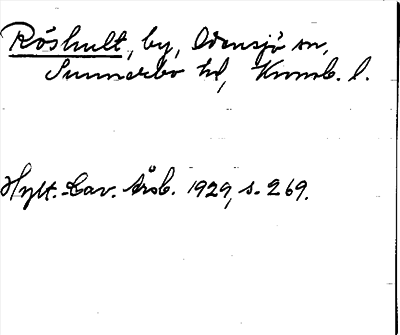 Röshult, by, Odensjö sn,
Sunnerbo hd, Kronob. l.
Hylt.-Cav. årsb. 1929, s. 269.